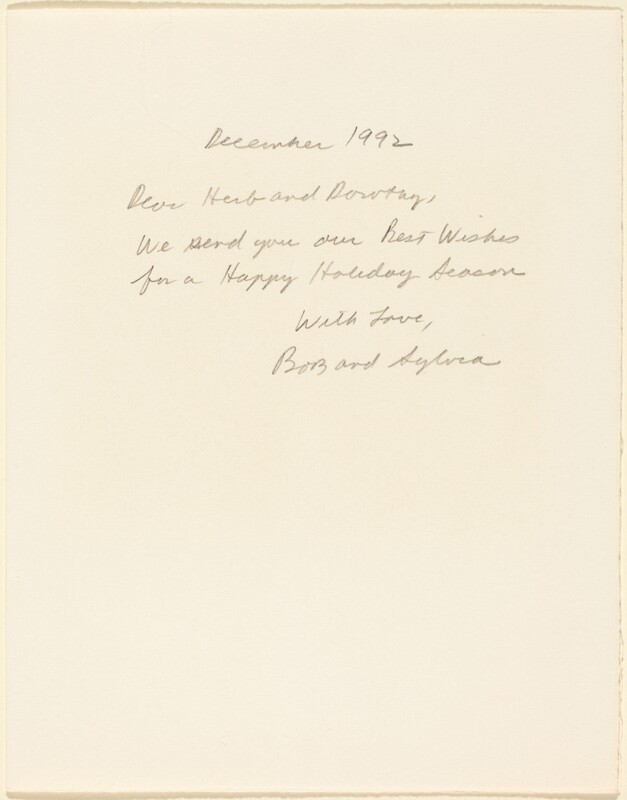 December 1992
Dear Herb and Dorothy,
We send you our Best Wishes
for a Happy Holiday Season
With Love,
Bob and Sylvia